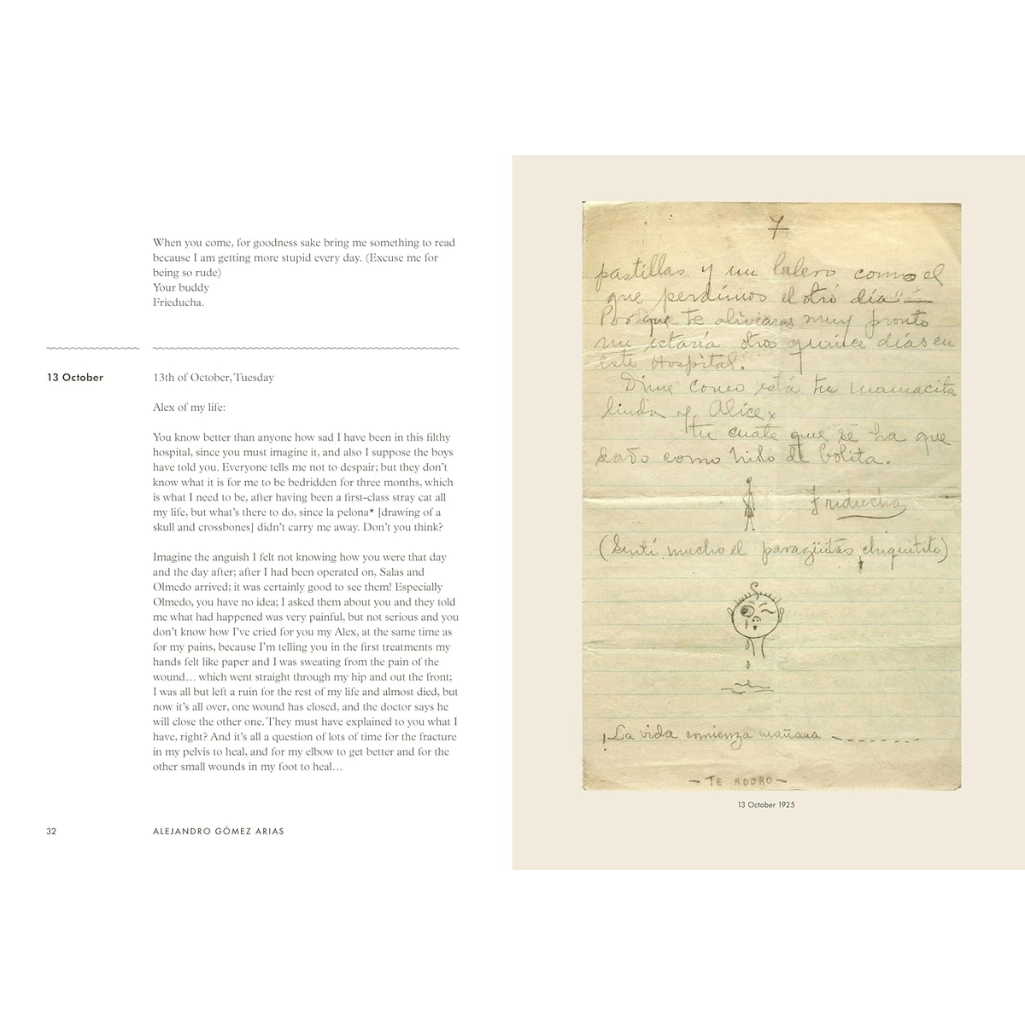 When you come, for goodness sake bring me something to read
because I am getting more stupid every day. (Excuse me for
being so rude)
Your buddy
Frieducha.
13 October
13th of October, Tuesday
Alex of my life:
You know better than anyone how sad I have been in this filthy
hospital, since you must imagine it, and also I suppose the boys
have told you. Everyone tells me not to despair; but they don't
know what it is for me to be bedridden for three months, which
is what I need to be, after having been a first-class stray cat all
my life, but what's there to do, since la pelona* [drawing of a
skull and crossbones] didn't carry me away. Don't you think?
Imagine the anguish I felt not knowing how you were that day
and the day after; after I had been operated on, Salas and
Olmedo arrived; it was certainly good to see them! Especially
Olmedo, you have no idea; I asked them about you and they told
me what had happened was very painful, but not serious and you
don't know how I've cried for you my Alex, at the same time as
for my pains, because I'm telling you in the first treatments my
hands felt like paper and I was sweating from the pain of the
wound… which went straight through my hip and out the front;
I was all but left a ruin for the rest of my life and almost died, but
now it's all over, one wound has closed, and the doctor says he
will close the other one. They must have explained to you what I
have, right? And it's all a question of lots of time for the fracture
in my pelvis to heal, and for my elbow to get better and for the
other small wounds in my foot to heal…
32
ALEJANDRO GÓMEZ ARIAS
7
pastillas y un balero como el
que perdimos el otro día
Porque te aliviaras muy pronto
estaría otro quince días en
este Hospital.
Dime como está tu mamacita
linda y Alice
tu cuate que se ha que
dado como hilo de bolita.
Friducha
(Sentí mucho el paragüitas chiquitito)
¡La vida comienza mañana
— TE ADORO —
13 October 1925